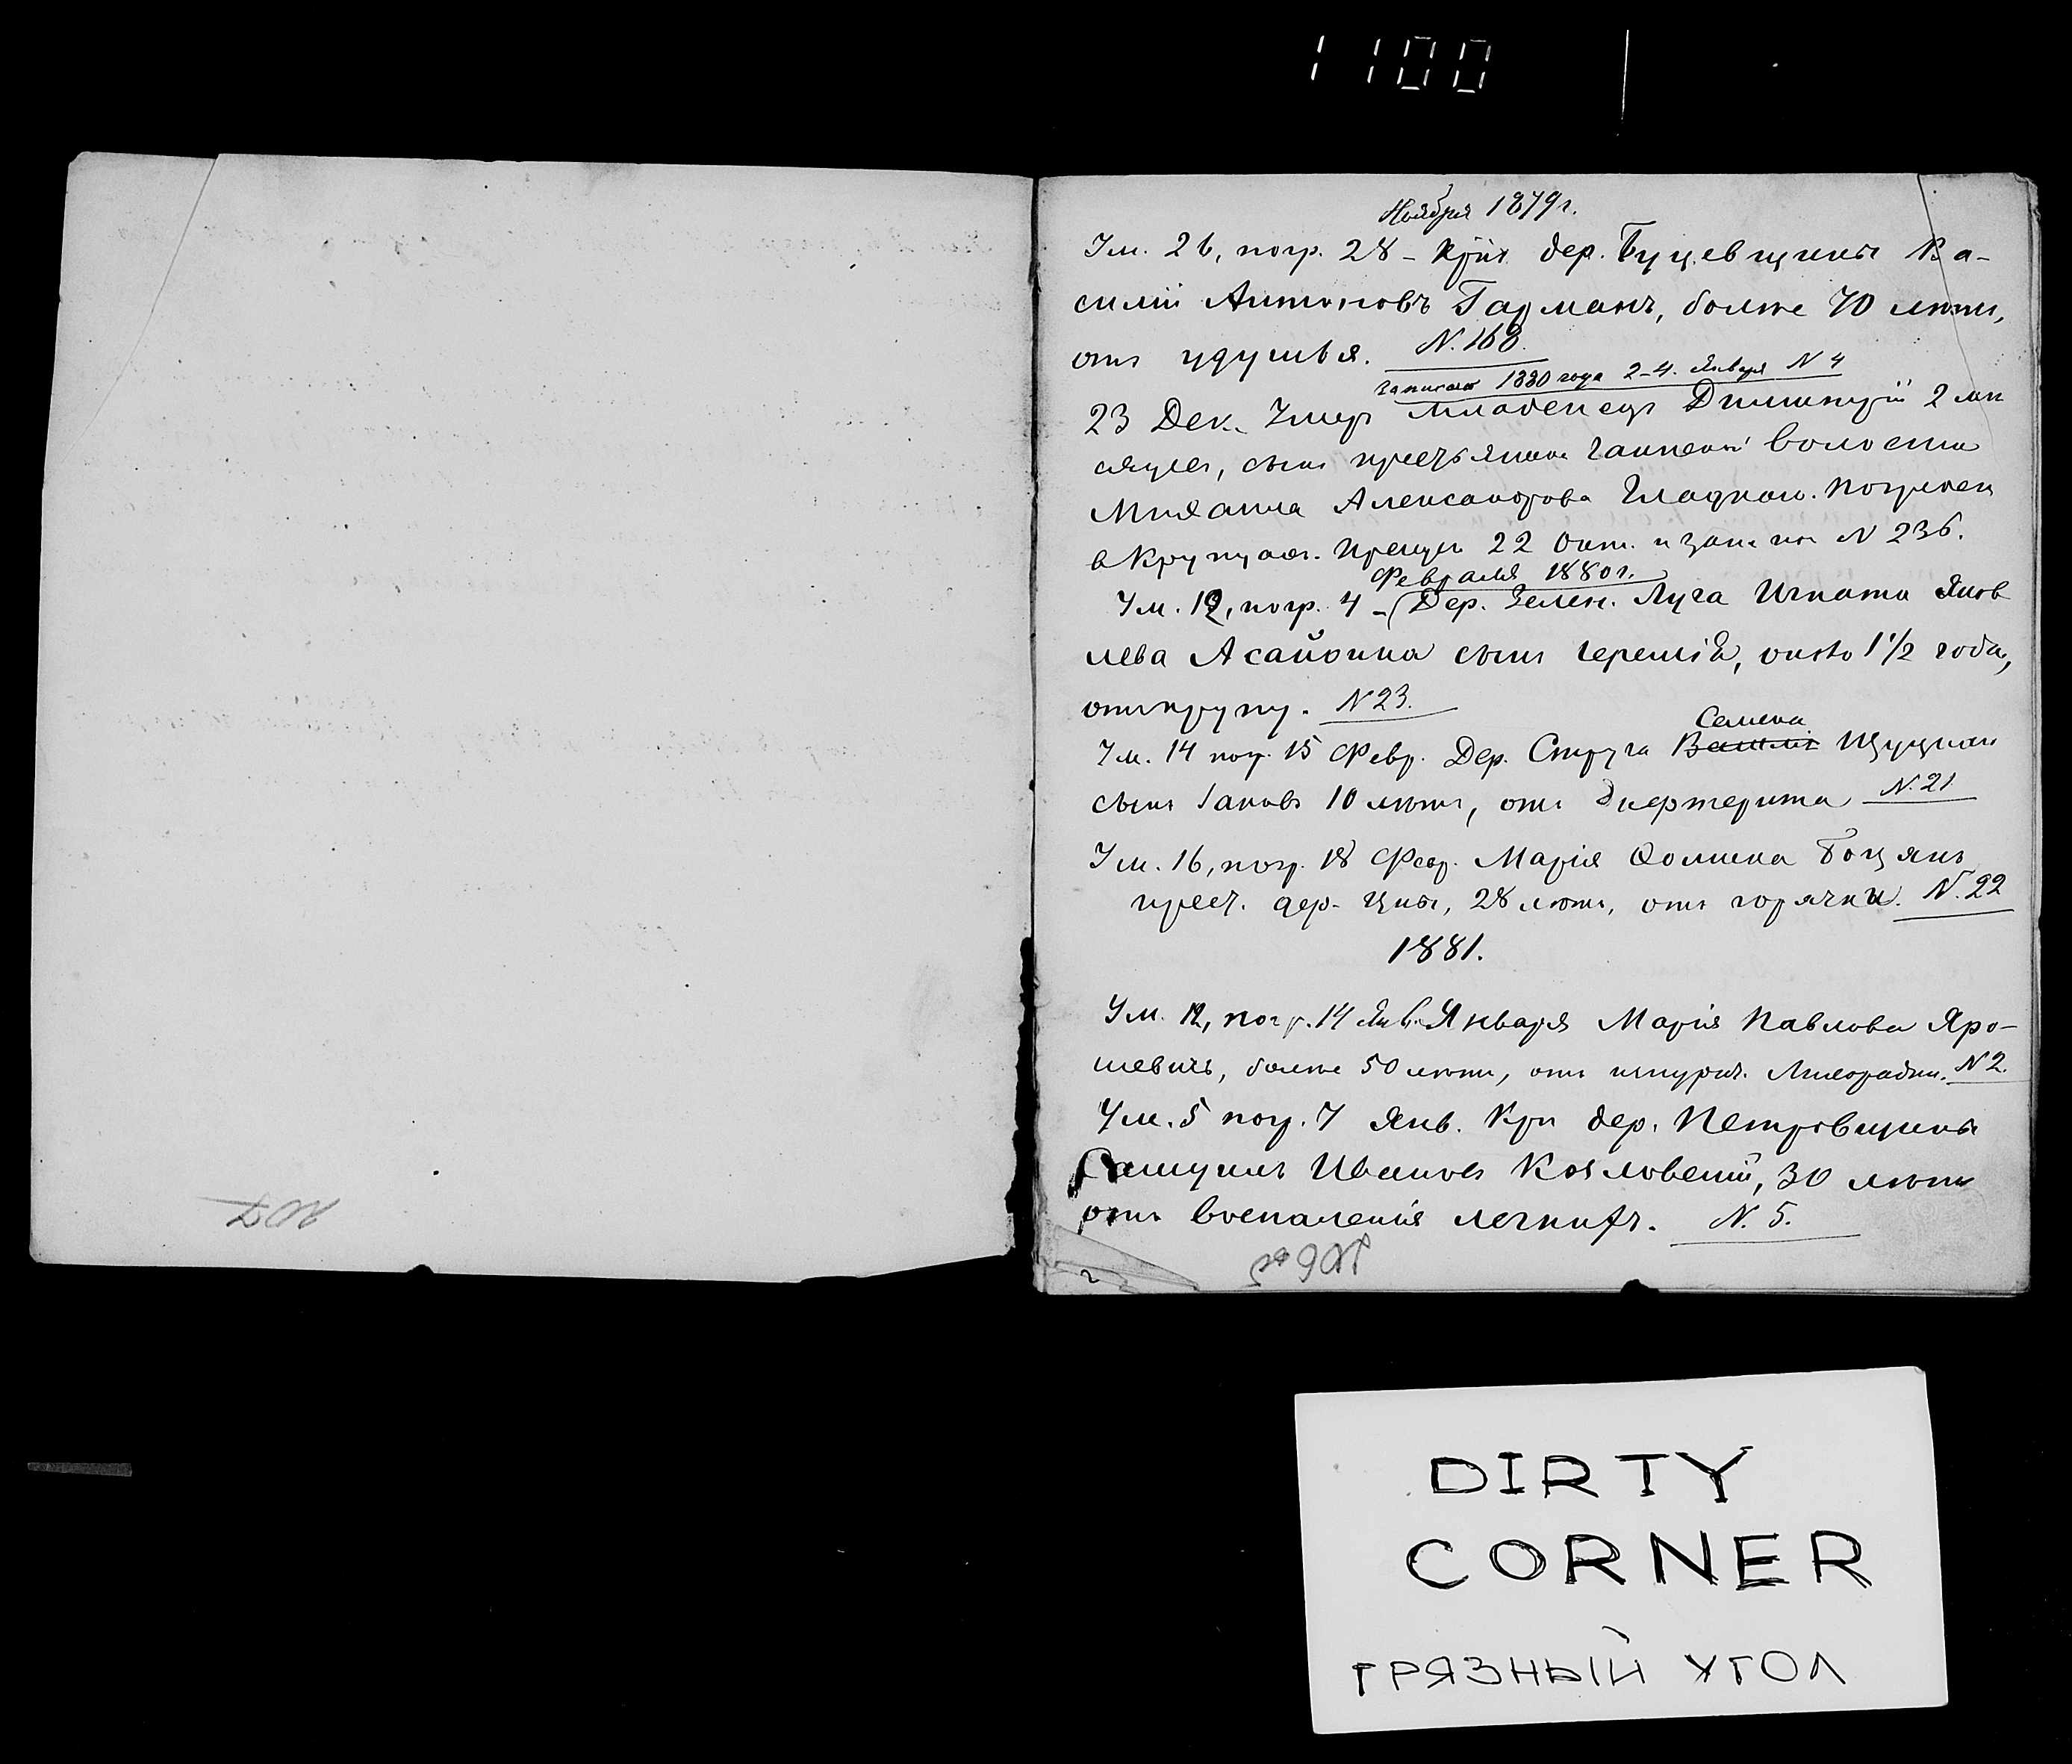 1100
Ноября 1879 г.
Ум. 26, погр. 28 – Крїн дер. Буцевщины Ва-
силій Антоновъ Гарманъ, болѣе 70 лѣтъ,
отъ удушья. N. 168.
Записанъ 1880 года 2–4. Января N 4
23 Дек. Умеръ младенецъ Димитрій 2 мѣ
сяцевъ, сынъ крестьянина волости
Михаила Александрова Гладкаго. Погребенъ
в Крупцахъ. Крещенъ 22 Окт. и запис. N 236.
Февраля 1880 г.
Ум. 12, погр. 4 – Дер. Зелен. Луга Игната Яков
лева сынъ Іеремія, около 1 1/2 года,
отъ крупу. N 23.
Семена
Ум. 14 погр. 15 Февр. Дер. Струга Василія
сынъ Іаковъ 10 лѣтъ, отъ дифтерита N. 21
Ум. 16, погр. 18 Февр. Марія Ѳомина Боцянъ
крест. дер. Цны, 28 лѣтъ, отъ горячки. N. 22
1881.
Ум. 12, погр. 14 Янв. Января Марія Павлова Яро-
шевичъ, болѣе 50 лѣтъ, отъ изнурит. Лихорадки. N 2.
Ум. 5 погр. 7 Янв. Крн дер. Петровщины
Самуилъ Ивановъ Козловскій, 30 лѣтъ
отъ воспаленія легкихъ. N. 5.
2
DIRTY
CORNER
ГРЯЗНЫЙ УГОЛ